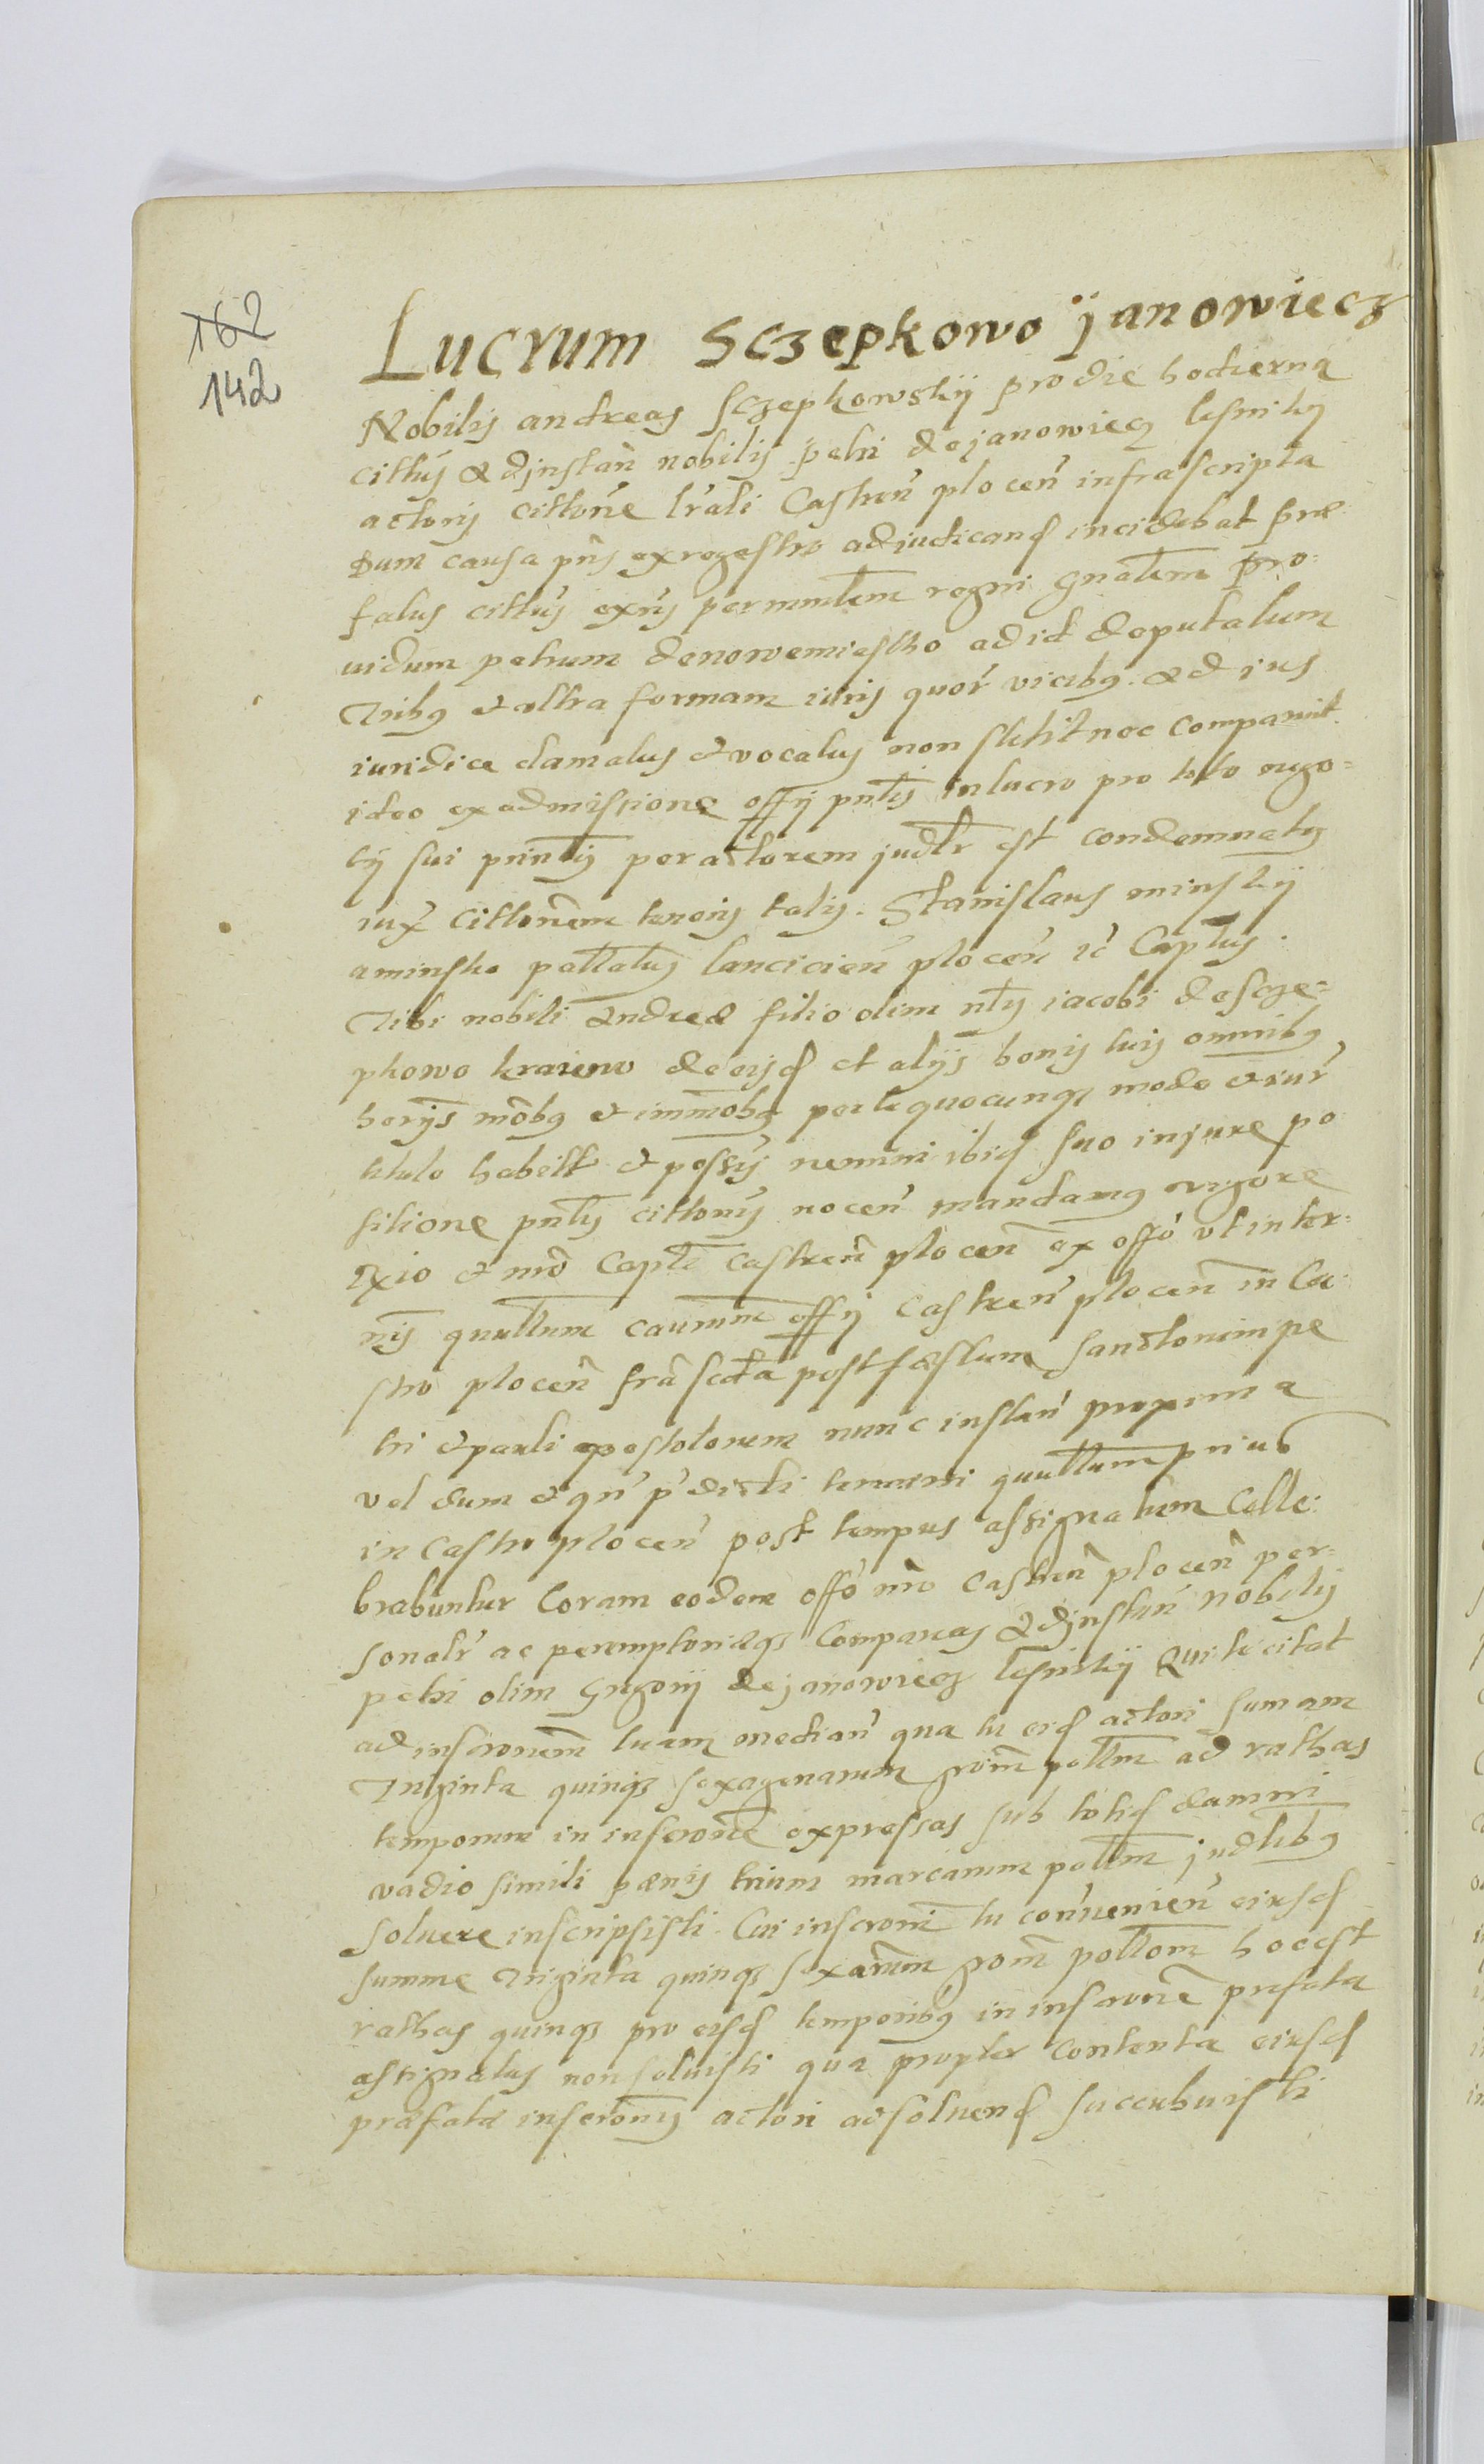 162
142
Lucrum Sczepkowo Janowiecz
Nobilis andreas Sczepkowskij pro die hodierna
cittus ad instan nobilis petri de janowiecz lesnitij
actoris cittone lrali Castren plocen infrascripta
Dum causa pns ex regestro adiudicand incidebat præ:
fatus cittus exns per mnlem regni gnalem pro:
uidum petrum de nowemiestho ad id deputatum
Tribus et ultra formam iuris quor vicibus ad ius
iuridice clamatus et vocatus non stetit nec comparuit
ideo ex admissione offij pntis in lucro pro toto nego=
tij sui prinlis per actorem judlr est condemnatus
iux cittonem tenoris talis. Stanislaus minskij
a minsko pallatus lancicien plocen ic Captus.
Tibi nobili andreæ filio olim nlis iacobi de scze=
pkowo kraiewo de eisd et alijs bonis tuis omnibus
herijs mobus et immobus per te quocunq modo et iur
titulo habitt et possis nemini ibid suo in jure po
sitione pntis cittonis nocen mandamus vigore
Rgio et nro Capte castren plocen ex offo vt in ter:
nis quultum caurum offij castren plocen in Ca:
stro plocen fra scda post fæstum sanctorum pe
tri et pauli apostolorum nunc instan proxima
vel dum et qn p dicti termini quultum prius
in Castro plocen post tempus assignatum Celle:
brabuntur Coram eodem offo nro castren plocen per=
sonalr ac peremptorieq Compareas ad instan nobilis
petri olim Grzgorij de janowiecz lesnitij Qui te citat
ad inscronem tuam median qua tu eid actori sumam
Triginta quinq sexagenarum grom pollm ad rathas
temporum in inscrone expressas sub totid damni
vadio simili pænis trium marcarum pollm judlibus
soluere inscripsisti. Cui inscroni tu conuenien eiusd
summe Triginta quinq sexarum grom pollom hoc est
rathas quinq pro eisd temporibus in inscrone præfata
assignatus non soluisti qua propter contenta eiusd
præfatæ inscronis actori ad soluend succubuisti